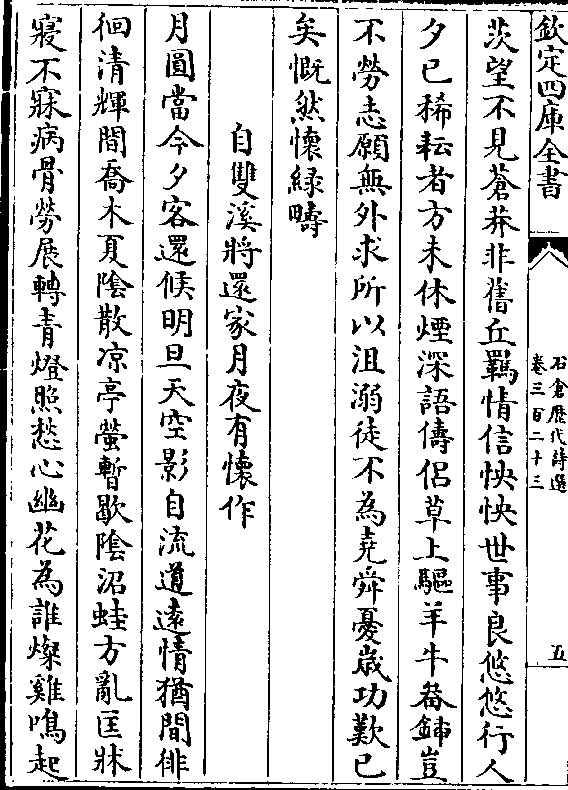 欽定四庫全書
石倉歴代詩選
卷三百二十三
五
茨望不見蒼莽非舊丘羈情信怏怏世事良悠悠行人
夕已稀耘者方未休煙深語儔侶草上驅羊牛畚鍤豈
不勞志願無外求所以沮溺徒不為堯舜憂嵗功歎已
矣慨然懷緑疇
自雙溪將還家月夜有懷作
月圓當今夕客還候明旦天空影自流道逺情猶間徘
徊清輝間喬木夏陰散凉亭螢暫歇陰沼蛙方亂匡牀
寢不寐病骨勞展轉青燈照愁心幽花為誰燦雞鳴起